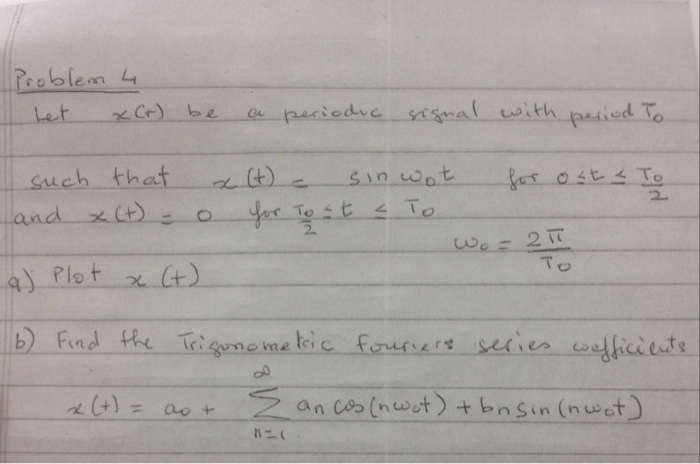 Problem 4
Let x(t) be a periodic signal with period T₀
such that x(t) = sin ω₀t for 0≤t≤ T₀/2
and x(t) = 0 for T₀/2 ≤ t ≤ T₀
ω₀ = 2π/T₀
a) Plot x(t)
b) Find the Trigonometric fouriers series coefficients
x(t) = a₀ + ∞ Σ n=1 an cos(nω₀t) + bn sin(nω₀t)